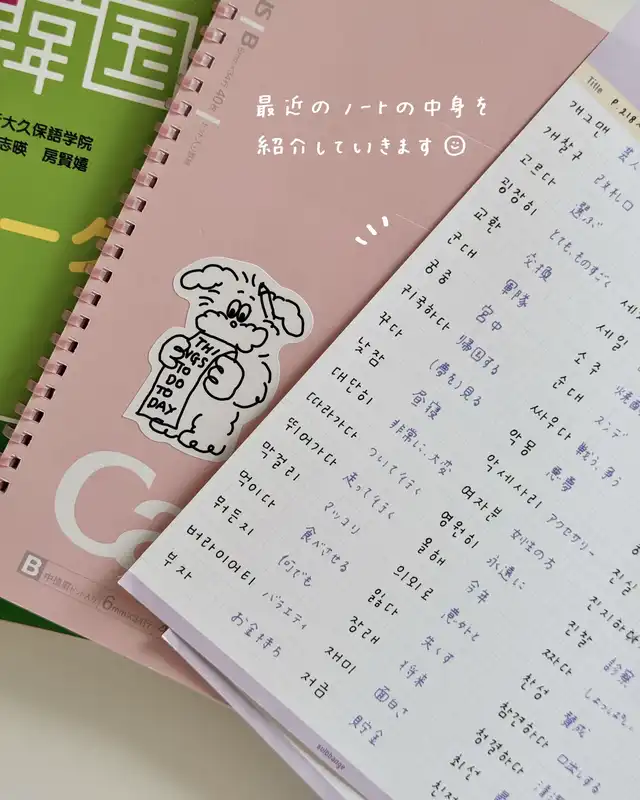 韓国
大久保語学院
志暎 房賢嬉
40
最近のノートの中身を
紹介していきます
THI
NGS
TO
DO
TO
DAY
Ca
B
6mm
Title P.218
개그맨
개찰구 改札口
고르다 選ぶ
굉장히 とても、ものすごく
교환 交換
군대 軍隊
궁중 宮中
귀국하다 帰国する
꾸다 (夢を)見る
낮잠 昼寝
대단히 非常に、大変
따라가다 ついて行く
뛰어가다 走って行く
막걸리 マッコリ
먹이다 食べさせる
뭐든지 何でも
버라이어티 バラエティ
부자 お金持ち
세일
소주
순대 スンデ
싸우다 戦う、争う
악몽 悪夢
악세사리 アクセサリー
여자분 女性の方
영원히 永遠に
올해 今年
의외로 意外と
잃다 失くす
장래 将来
재미 面白さ
저금 貯金
진찰 診察
짜다 しょっぱい
찬성 賛成
참견하다 口出しする
청결하다
최선
suipbange